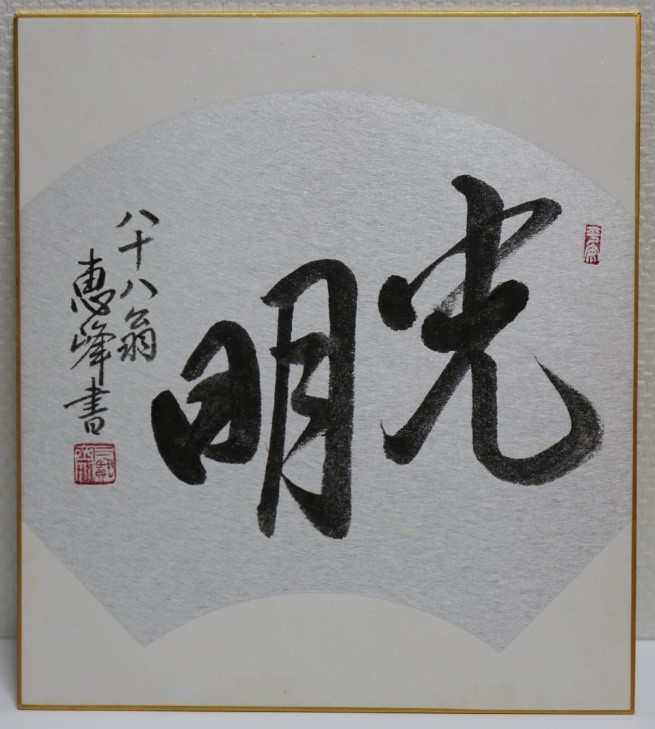 光明
八十八翁
恵峰書